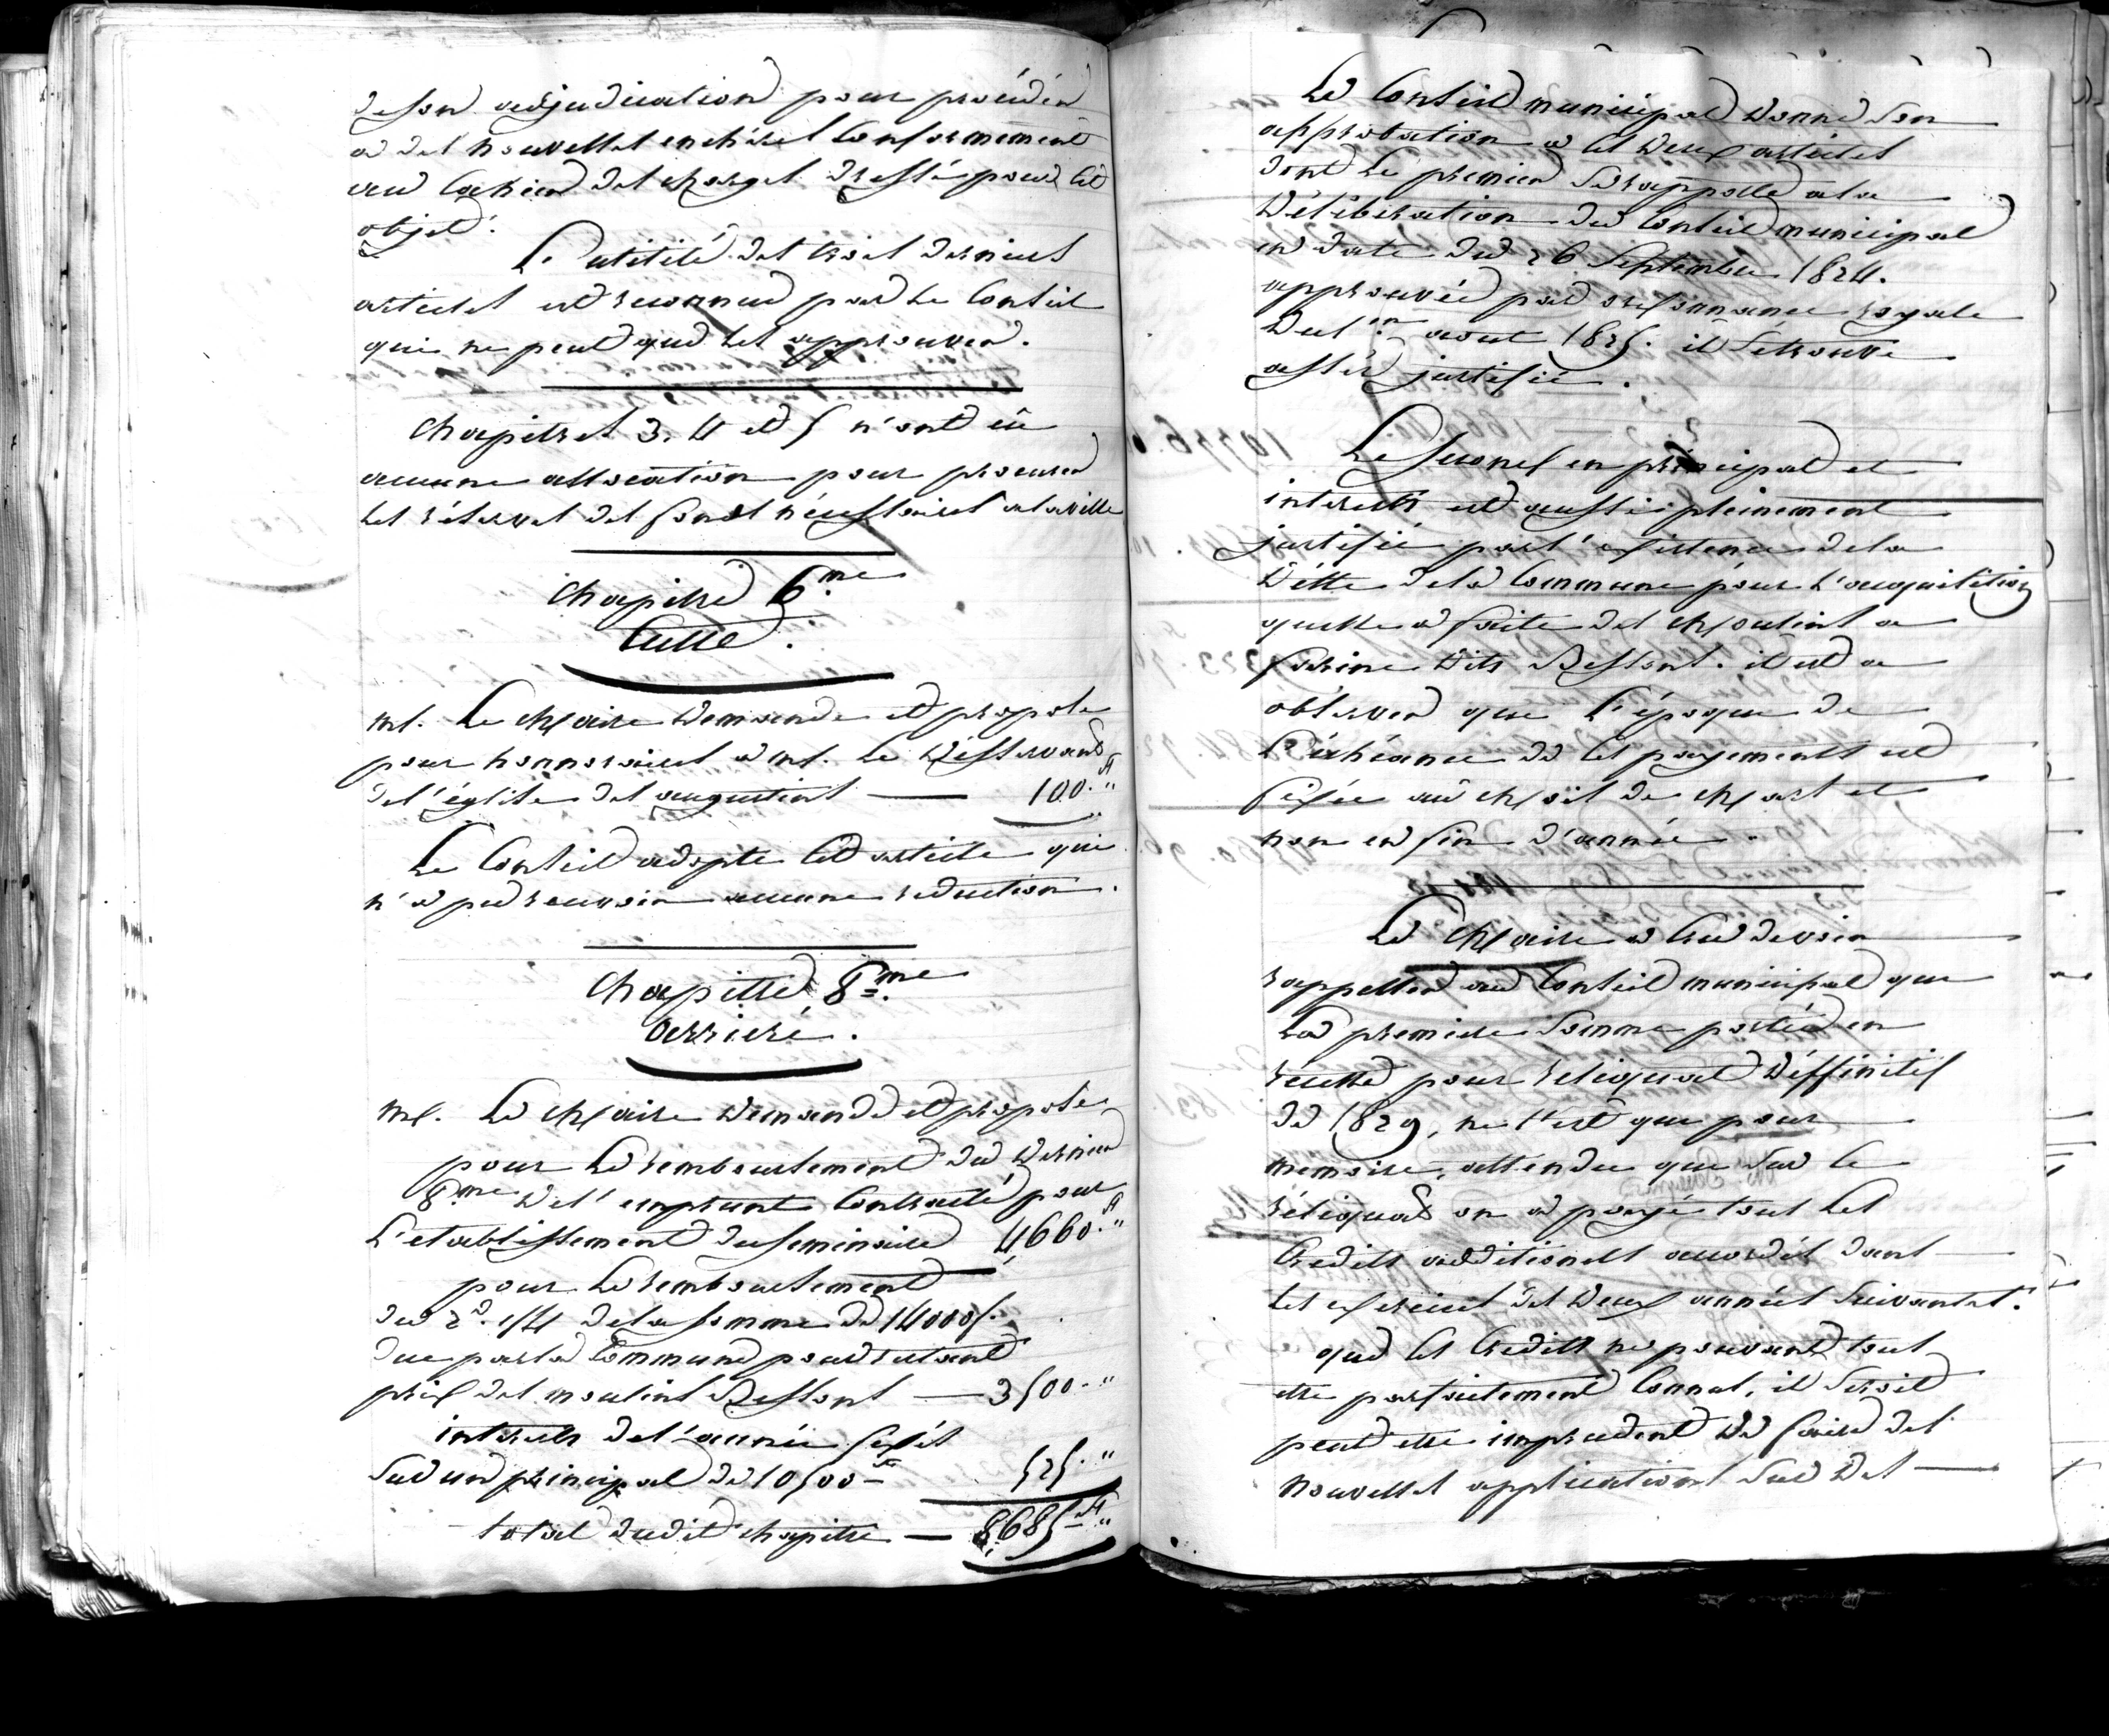 de son adjudication pour procéder
a des nouvelles enchères conformement
au Cahier des charges dressé pour cet
objet.
L'utilité des trois derniers
articles est reconnue par le Conseil
qui ne peut que les approuver.
Chapitres 3, 4 et 5 n'ont eû
aucune allocation pour procurer
les réserves des fonds nécessaires a la ville
Chapitre 6.me
Culte.
Mr. Le Maire demande et propose
pour honnoraires a Mr. le Désservant
de l'église des augustins — 100.f "
Le Conseil adopte cet article qui
n'a pu recevoir aucune reduction.
Chapitre 8.me
arriéré.
Mr. Le Maire demande et propose
pour le remboursement du dernier
8.me de l'emprunt Contracté pour
l'etablissement du seminaire 4,660.f "
pour le remboursement
du 2.d 1/4 de la somme de 14000f.
due par la Commune pour restant
prix des moulins Bessons — 3500. "
interets de l'année fixés
sur un principal de 10500 f 525. "
total dudit chapitre — 8,685 f "
Le Conseil municipal donne son
approbation a ces deux articles
dont le premier se rappelle a la
Déliberation du Conseil municipal
en date du 26 Septembre 1824.
approuvée par ordonnance royale
du 1.er aout 1825. il se trouve
assés justifié.
Le second en principal et
interets est aussi pleinement
justifié par l'existence de la
Dette de la Commune pour l'acquisition
quelle a faite des Moulins a
farine dits Bessons. il est a
observer que l'époque de
l'échéance de ces payements est
fixée au Mois de Mars et
non en fin d'année.
Le Maire a Cru devoir
rappeller au Conseil municipal que
la premiere somme portée en
recette pour reliquat Déffinitif
de 1829, ne l'est que pour
memoire, attendu que sur le
réliquat on a payé tous les
Credits additionels accordés dans
les exercices des deux années suivantes.
que les Credits ne pouvant tous
etre parfaitement Connus, il seroit
peut etre imprudent de faire des
nouvelles applications sur des